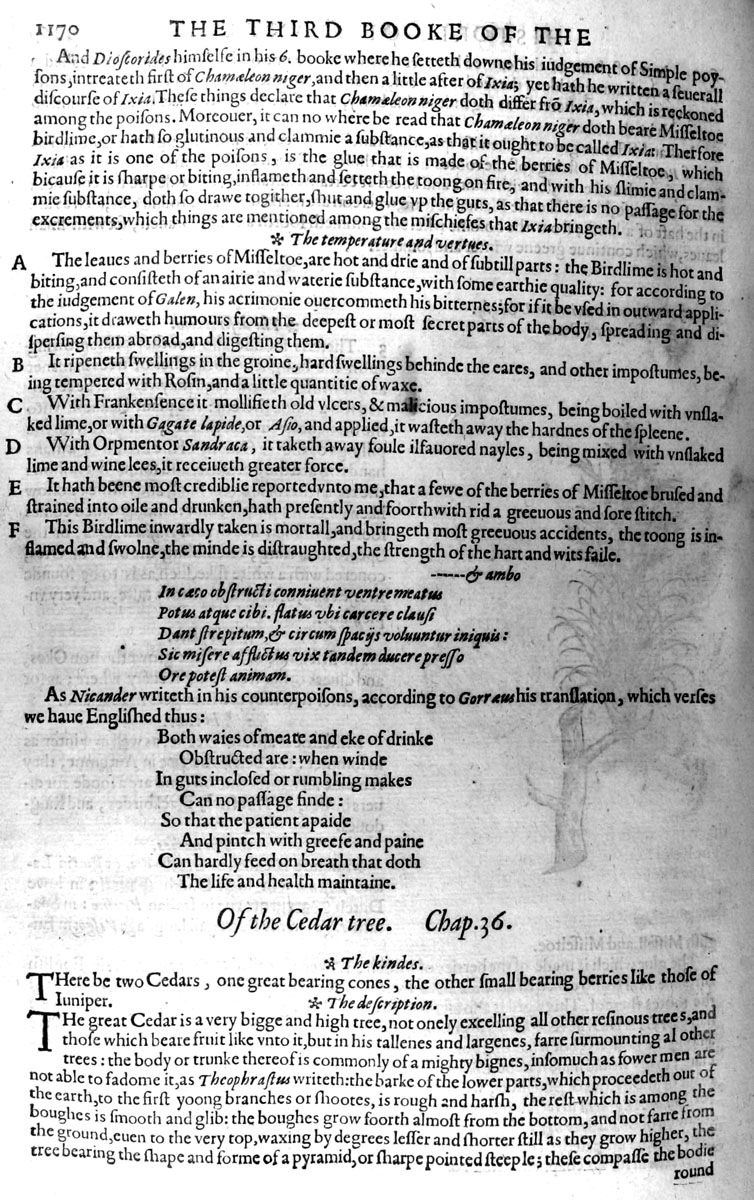 1170 THE THIRD BOOKE OF THE
And Dioſcorides himſelfe in his 6. booke where he ſetteth downe his iudgement of Simple poy-
ſons, intreateth firſt of Chamæleon niger, and then a little after of Ixia; yet hath he written a ſeuerall
diſcourſe of Ixia. Theſe things declare that Chamæleon niger doth differ frō Ixia, which is reckoned
among the poiſons. Moreouer, it can no where be read that Chamæleon niger doth beare Miſſeltoe
birdlime, or hath ſo glutinous and clammie a ſubſtance, as that it ought to be called Ixia: Therfore
Ixia as it is one of the poiſons, is the glue that is made of the berries of Miſſeltoe, which
bicauſe it is ſharpe or biting, inflameth and ſetteth the toong on fire, and with his ſlimie and clam-
mie ſubſtance, doth ſo drawe togither, ſhut and glue vp the guts, as that there is no paſſage for the
excrements, which things are mentioned among the miſchiefes that Ixia bringeth.
❧ The temperature and vertues.
A The leaues and berries of Miſſeltoe, are hot and drie and of ſubtill parts: the Birdlime is hot and
biting, and conſiſteth of an airie and waterie ſubſtance, with ſome earthie quality: for according to
the iudgement of Galen, his acrimonie ouercommeth his bitternes; for if it be vſed in outward appli-
cations, it draweth humours from the deepeſt or moſt ſecret parts of the body, ſpreading and di-
ſperſing them abroad, and digeſting them.
B It ripeneth ſwellings in the groine, hard ſwellings behinde the eares, and other impoſtumes, be-
ing tempered with Roſin, and a little quantitie of waxe.
C With Frankenſence it mollifieth old vlcers, & malicious impoſtumes, being boiled with vnſla-
ked lime, or with Gagate lapide, or Aſio, and applied, it waſteth away the hardnes of the ſpleene.
D With Orpment or Sandraca, it taketh away foule ilfauored nayles, being mixed with vnſlaked
lime and wine lees, it receiueth greater force.
E It hath beene moſt crediblie reported vnto me, that a fewe of the berries of Miſſeltoe bruſed and
ſtrained into oile and drunken, hath preſently and foorthwith rid a greeuous and ſore ſtitch.
F This Birdlime inwardly taken is mortall, and bringeth moſt greeuous accidents, the toong is in-
flamed and ſwolne, the minde is diſtraughted, the ſtrength of the hart and wits faile.
-----& ambo
In cæco obſtructi conniuent ventre meatus
Potus atque cibi. flatus vbi carcere clauſi
Dant ſtrepitum, & circum ſpacijs voluuntur iniquis:
Sic miſere afflictus vix tandem ducere preſſo
Ore poteſt animam.
As Nicander writeth in his counterpoiſons, according to Gorræus his tranſlation, which verſes
we haue Engliſhed thus:
Both waies of meate and eke of drinke
Obſtructed are: when winde
In guts incloſed or rumbling makes
Can no paſſage finde:
So that the patient apaide
And pintch with greefe and paine
Can hardly feed on breath that doth
The life and health maintaine.
Of the Cedar tree. Chap. 36.
❧ The kindes.
THere be two Cedars, one great bearing cones, the other ſmall bearing berries like thoſe of
Iuniper.
❧ The deſcription.
THe great Cedar is a very bigge and high tree, not onely excelling all other reſinous trees, and
thoſe which beare fruit like vnto it, but in his tallenes and largenes, farre ſurmounting al other
trees: the body or trunke thereof is commonly of a mighty bignes, inſomuch as fower men are
not able to fadome it, as Theophraſtus writeth: the barke of the lower parts, which proceedeth out of
the earth, to the firſt yoong branches or ſhootes, is rough and harſh, the reſt which is among the
boughes is ſmooth and glib: the boughes grow foorth almoſt from the bottom, and not farre from
the ground, euen to the very top, waxing by degrees leſſer and ſhorter ſtill as they grow higher, the
tree bearing the ſhape and forme of a pyramid, or ſharpe pointed ſteeple; theſe compaſſe the bodie
round